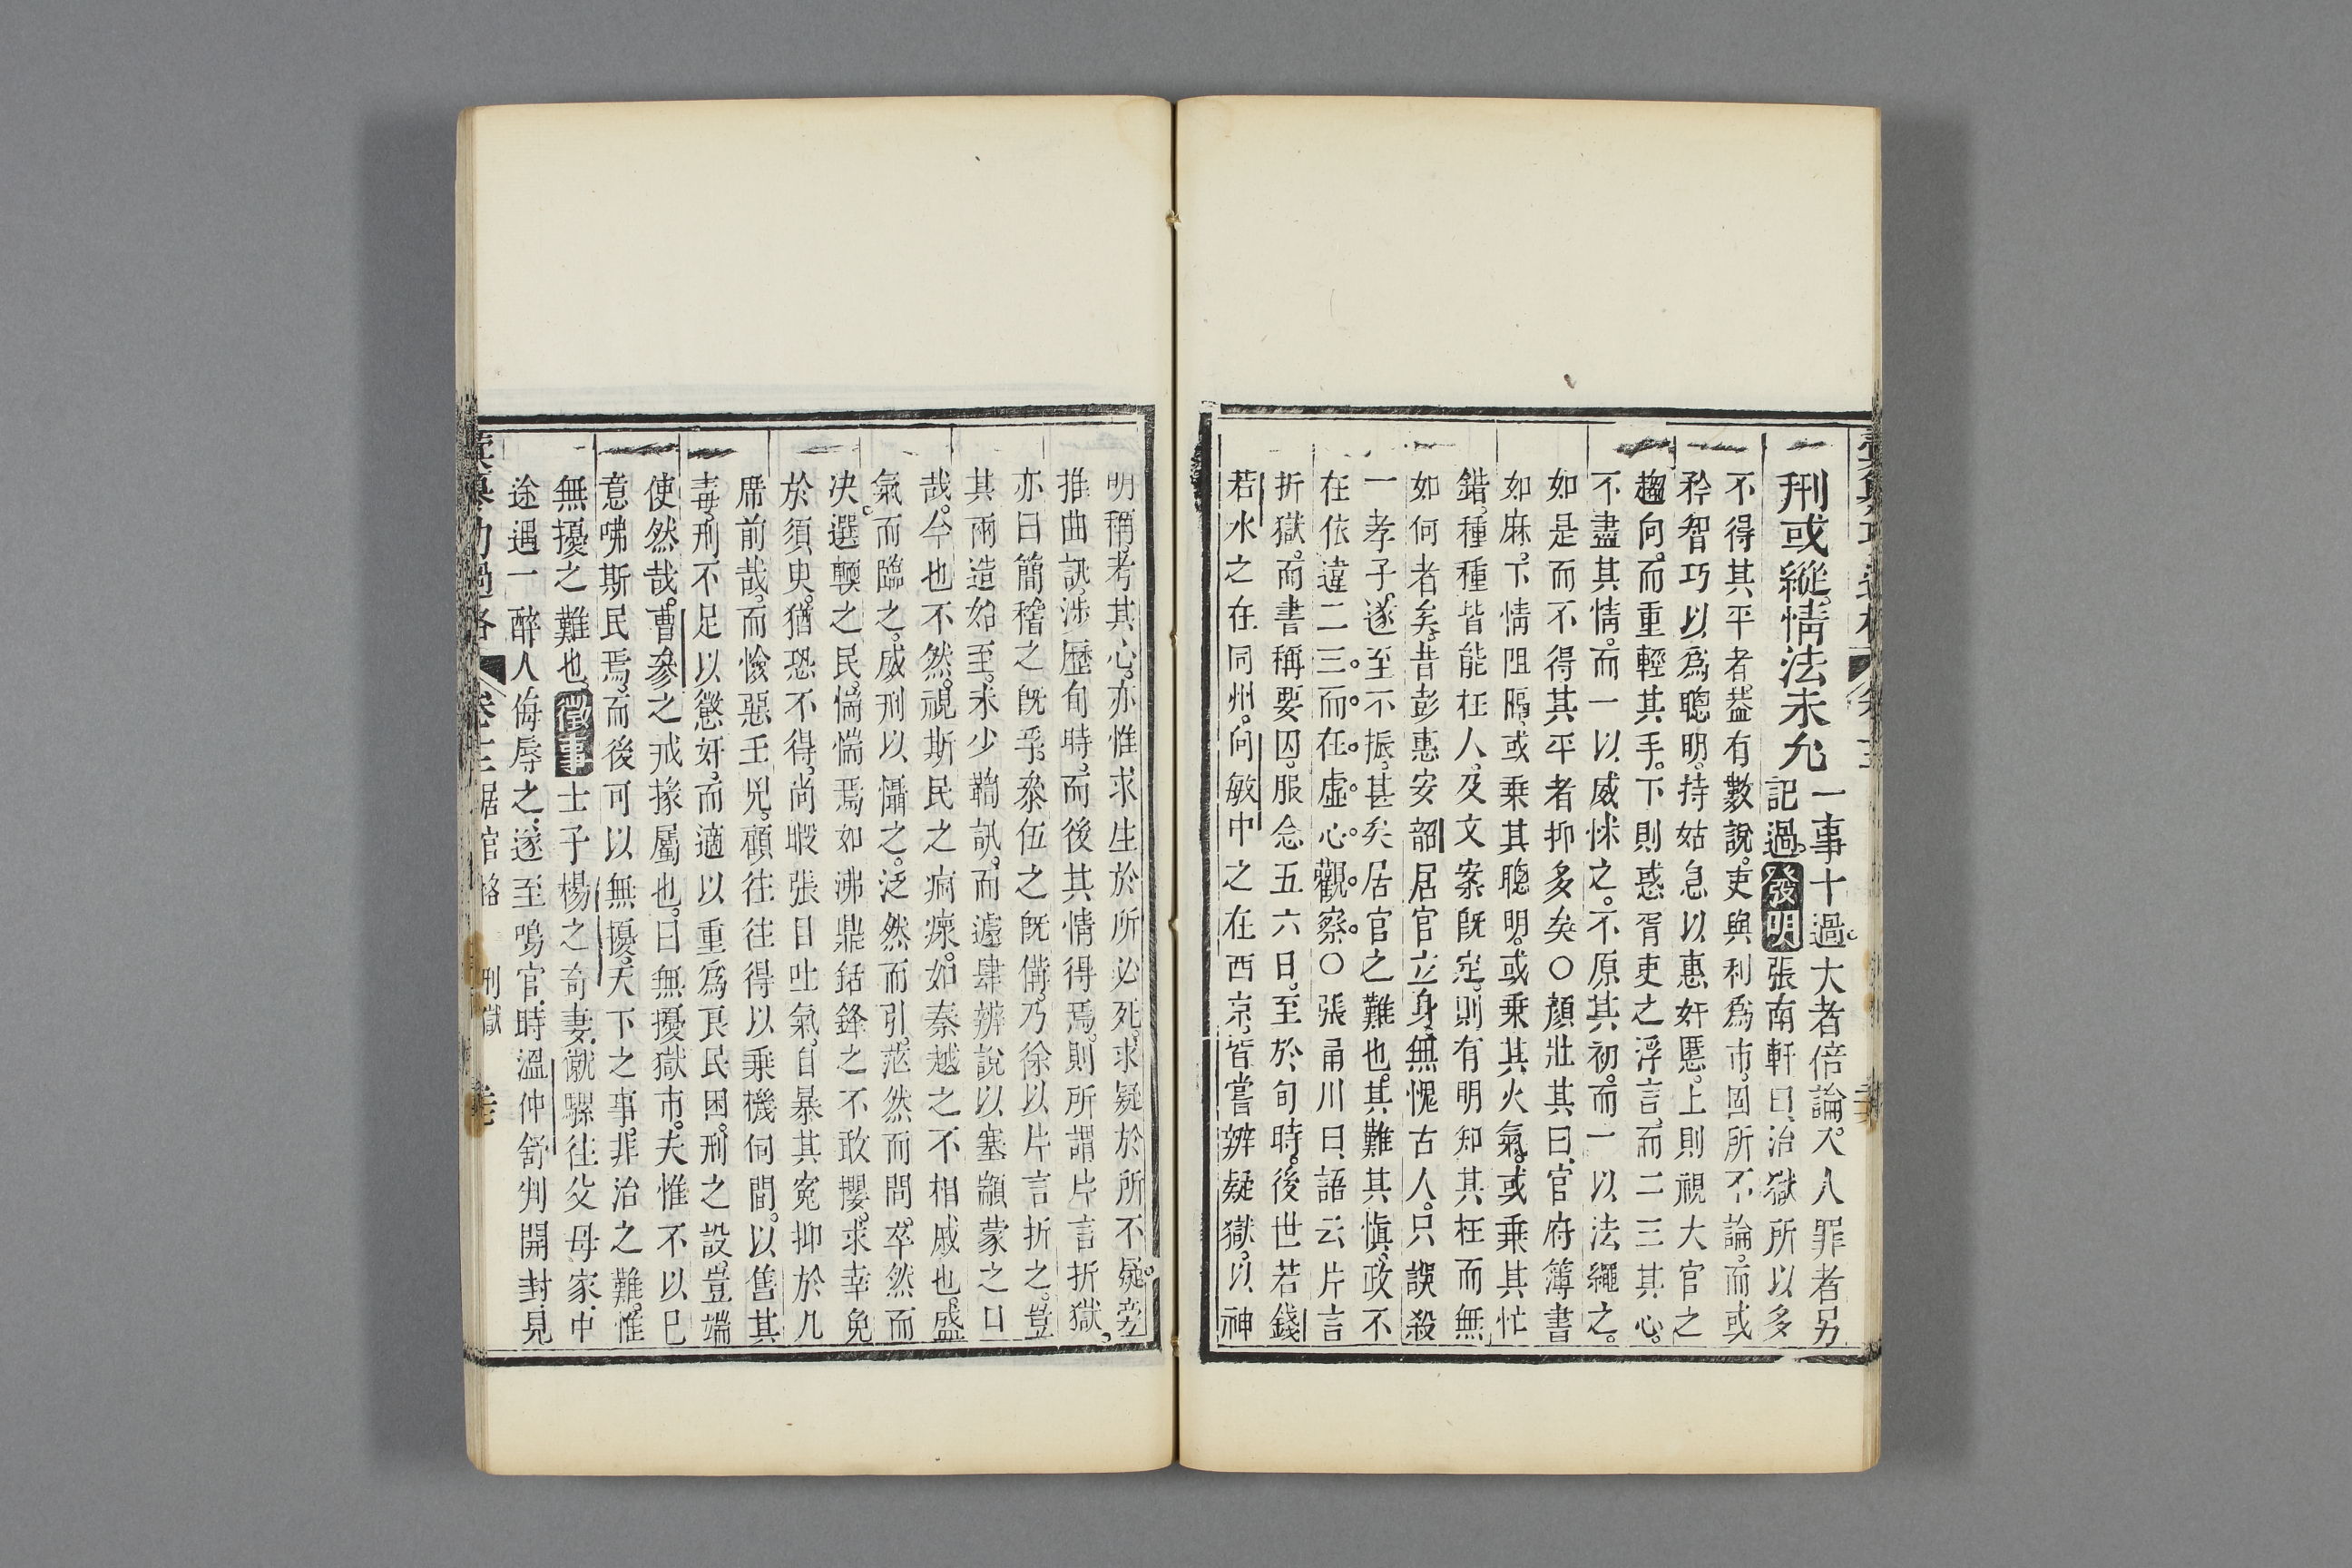 刑或縱情法未允一事十過。大者倍論。入人罪者另
記過。發明張南軒曰、治獄所以多
不得其平者、葢有數說。吏與利為市。固所不論。而或
矜智巧以為聰明。持姑息以惠奸慝。上則視大官之
趨向。而重輕其手。下則惑胥吏之浮言、而二三其心。
不盡其情。而一以威怵之。不原其初。而一以法繩之。
如是而不得其平者抑多矣○顏壯其曰、官府簿書
如麻。下情阻隔、或乗其聰明。或乗其火氣。或乗其忙
錯。種種皆能枉人。及文案既定。則有明知其枉而無
如何者矣。昔彭惠安韶居官立身。無愧古人。只誤殺
一孝子。遂至不振。甚矣居官之難也。其難其慎。政不
在依違二三。而在虛心觀察。○張甬川曰、語云片言
折獄。而書稱要囚。服念五六日。至於旬時。後世若錢
若水之在同州。向敏中之在西京。皆嘗辨疑獄。以神
明稱。考其心。亦惟求生於所必死。求疑於所不疑。旁
推曲訊。涉歷旬時。而後其情得焉。則所謂片言折獄。
亦曰簡稽之既孚。參伍之既備。乃徐以片言折之。豈
其兩造始至。未少鞫訊。而遽肆辨說以塞顓蒙之口
哉。今也不然。視斯民之痌瘝。如秦越之不相戚也。盛
氣而臨之。威刑以懾之。泛然而引。茫然而問。卒然而
决。選輭之民。惴惴焉如沸鼎銛鋒之不敢攖。求幸免
於須臾。猶恐不得。尚暇張目吐氣。自暴其寃抑於几
席前哉。而憸惡壬兇。顧往往得以乗機伺間。以售其
毒。刑不足以懲奸。而適以重為良民困。刑之設。豈端
使然哉。曹參之戒掾屬也。曰無擾獄市。夫惟不以己
意咈斯民焉。而後可以無擾。天下之事。非治之難。惟
無擾之難也。徵事士子楊之奇妻。僦騾往父母家。中
途遇一醉人侮辱之。遂至鳴官。時溫仲舒判開封。見
彙纂功過格 卷十三 居官格 刑獄